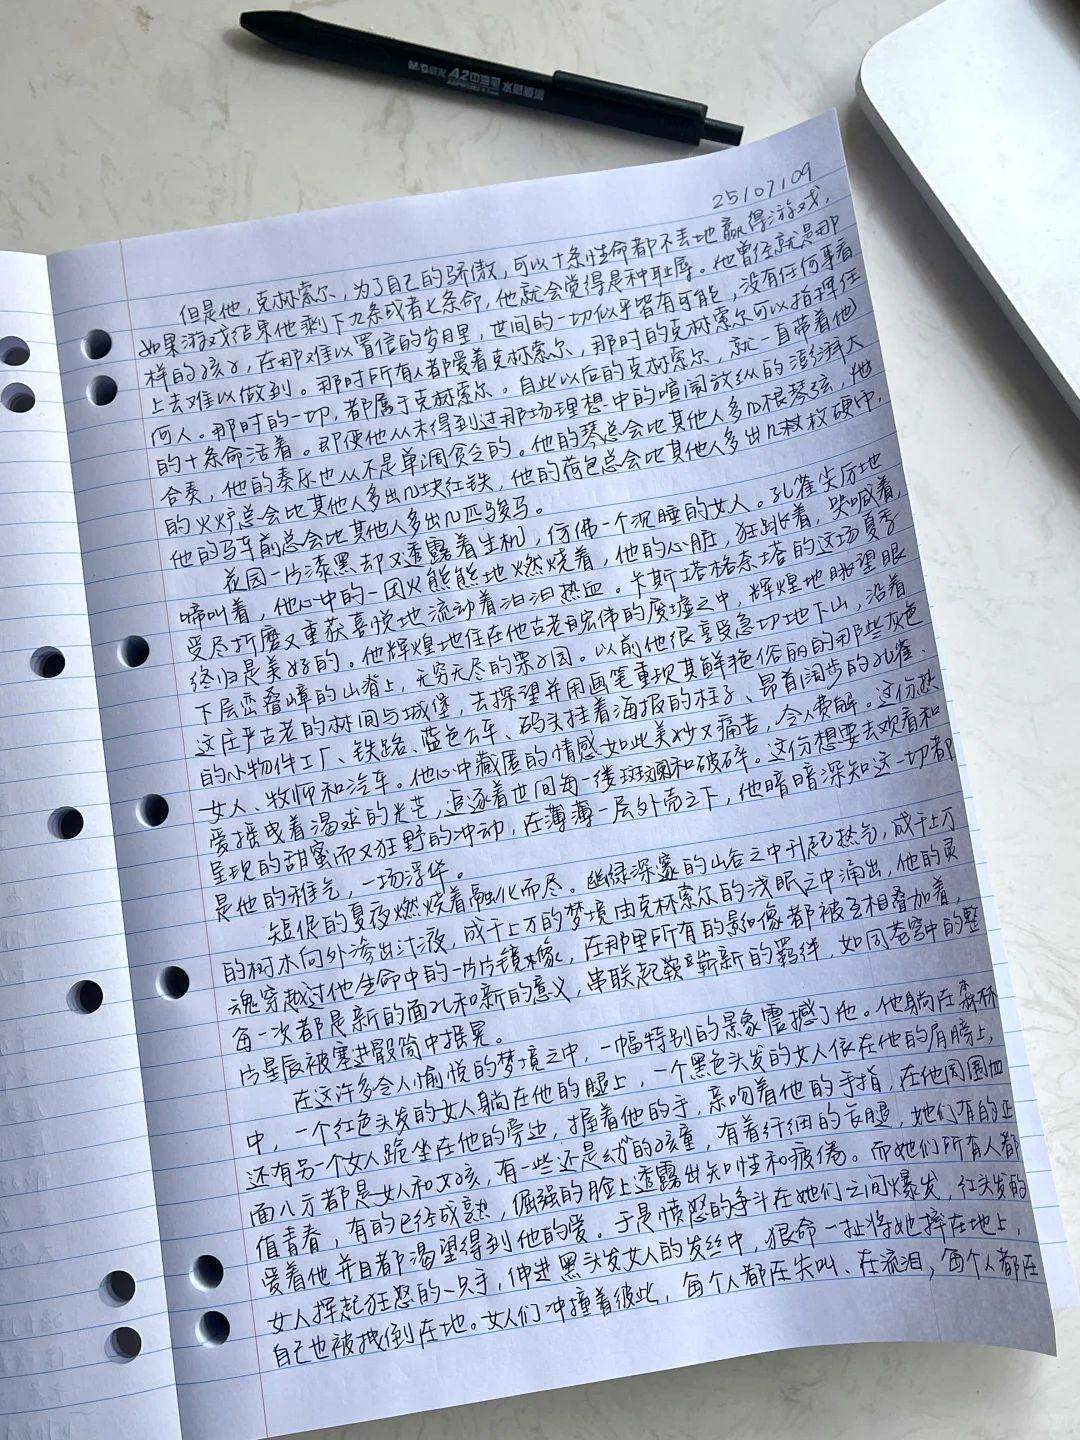 M&G晨光 A2中油笔
25107109
但是他，克林索尔，为了自己的骄傲，可以十条性命都不丢地赢得游戏，
如果游戏结束他剩下九条或者七条命，他就会觉得是种耻辱。他曾经就是那
样的孩子，在那难以置信的岁月里，世间的一切似乎皆有可能，没有任何事看
上去难以做到。那时所有人都爱着克林索尔，那时的克林索尔可以指挥任
何人。那时的一切，都属于克林索尔。自此以后的克林索尔，就一直带着他
的十条命活着。即使他从未得到过那场理想中的喧闹放纵的澎湃大
合奏，他的奏乐也从不是单调贫乏的。他的琴总会比其他人多几根琴弦，他
的火炉总会比其他人多出几块红铁，他的荷包总会比其他人多出几枚硬币，
他的马车前总会比其他人多出几匹骏马。
花园一片漆黑却又透露着生机，仿佛一个沉睡的女人。孔雀尖厉地
啼叫着，他心中的一团火熊熊地燃烧着，他的心脏，狂跳着，哭喊着，
受尽折磨又重获喜悦地流动着汩汩热血。卡斯塔格奈塔的这场夏季
终归是美好的。他辉煌地住在他古老宏伟的废墟之中，辉煌地眺望眼
下层峦叠嶂的山脊上，无穷无尽的栗子园。以前他很享受急切地下山，沿着
这庄严古老的林间与城堡，去探望并用画笔重现其鲜艳俗丽的那些灰色
的小物件工厂、铁路、蓝色公车、码头挂着海报的柱子、昂首阔步的孔雀、
女人、牧师和汽车。他心中藏匿的情感如此美妙又痛苦，令人费解。这份热
爱摇曳着渴求的光芒，追逐着世间每一缕斑斓和破碎。这份想要去观看和
呈现的甜蜜而又狂野的冲动，在薄薄一层外壳之下，他暗暗深知这一切都
是他的稚气，一场浮华。
短促的夏夜燃烧着融化而尽。幽绿深邃的山谷之中升起热气，成千上万
的树木向外渗出汁液，成千上万的梦境由克林索尔的浅眠之中涌出，他的灵
魂穿越过他生命中的一片片镜像，在那里所有的影像都被互相叠加着，
每一次都是新的面孔和新的意义，串联起崭新的羁绊，如同苍穹中的整
片星辰被塞进骰筒中摇晃。
在这许多令人愉悦的梦境之中，一幅特别的景象震撼了他。他躺在森林
中，一个红色头发的女人躺在他的腿上，一个黑色头发的女人依在他的肩膀上，
还有另一个女人跪坐在他的旁边，握着他的手，亲吻着他的手指，在他周围四
面八方都是女人和女孩，有一些还是幼小的孩童，有着纤细的长腿，她们有的正
值青春，有的已经成熟，倔强的脸上透露出知性和疲倦。而她们所有人都
爱着他并且都渴望得到他的爱。于是愤怒的争斗在她们之间爆发，红头发的
女人挥起狂怒的一只手，伸进黑头发女人的发丝中，狠命一扯将她摔在地上，
自己也被拽倒在地。女人们冲撞着彼此，每个人都在尖叫、在流泪，每个人都在